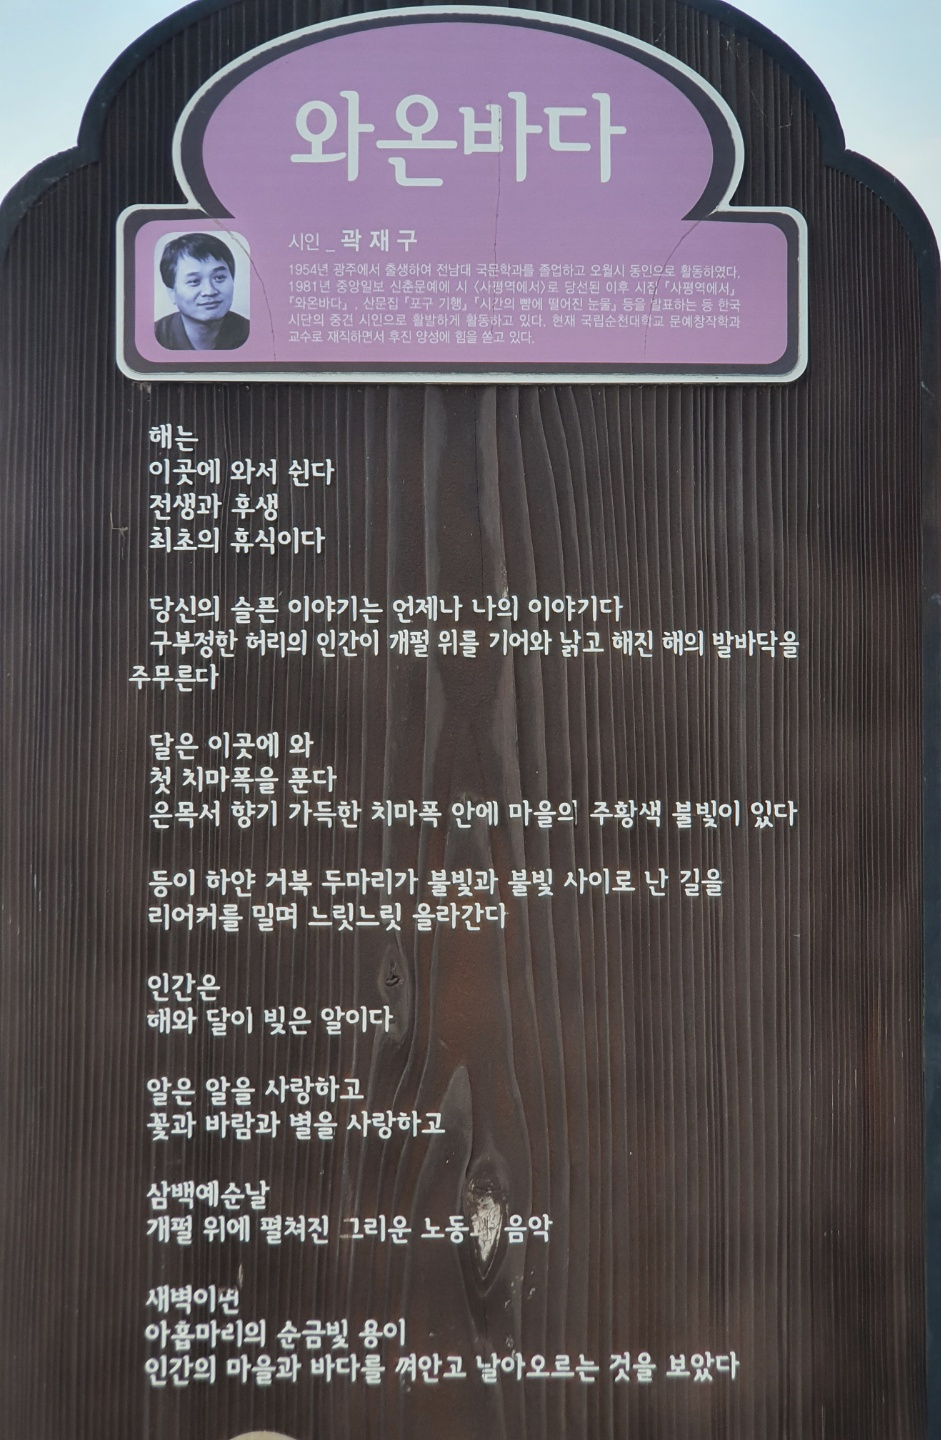 와온바다
시인 _ 곽재구
1954년 광주에서 출생하여 전남대 국문학과를 졸업하고 오월시 동인으로 활동하였다.
1981년 중앙일보 신춘문예에 시 〈사평역에서〉로 당선된 이후 시집 『사평역에서』
『와온바다』, 산문집 『포구 기행』, 『시간의 뺨에 떨어진 눈물』 등을 발표하는 등 한국
시단의 중견 시인으로 활발하게 활동하고 있다. 현재 국립순천대학교 문예창작학과
교수로 재직하면서 후진 양성에 힘을 쏟고 있다.
해는
이곳에 와서 쉰다
전생과 후생
최초의 휴식이다
당신의 슬픈 이야기는 언제나 나의 이야기다
구부정한 허리의 인간이 개펄 위를 기어와 낡고 해진 해의 발바닥을
주무른다
달은 이곳에 와
첫 치마폭을 푼다
은목서 향기 가득한 치마폭 안에 마을의 주황색 불빛이 있다
등이 하얀 거북 두마리가 불빛과 불빛 사이로 난 길을
리어커를 밀며 느릿느릿 올라간다
인간은
해와 달이 빚은 알이다
알은 알을 사랑하고
꽃과 바람과 별을 사랑하고
삼백예순날
개펄 위에 펼쳐진 그리운 노동과 음악
새벽이면
아홉마리의 순금빛 용이
인간의 마을과 바다를 껴안고 날아오르는 것을 보았다